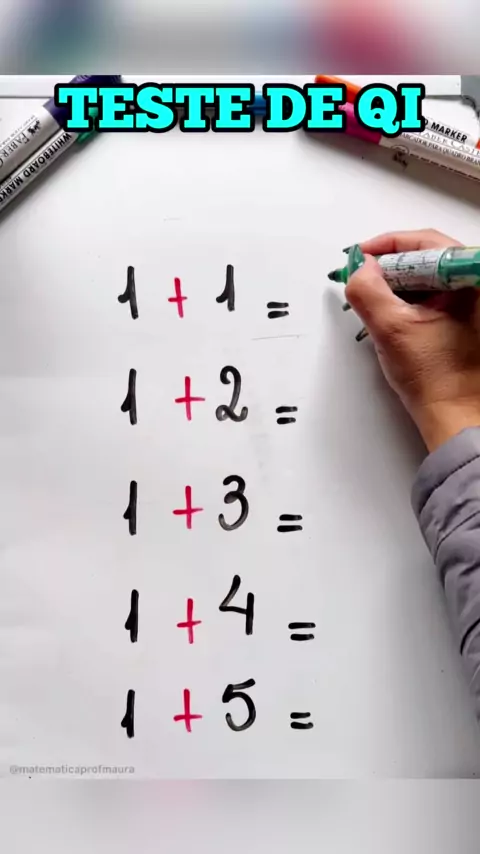 TESTE DE QI
WHITEBOARD MARKER
MARKER
1 + 1 =
1 + 2 =
1 + 3 =
1 + 4 =
1 + 5 =
@matematicaprofmaura